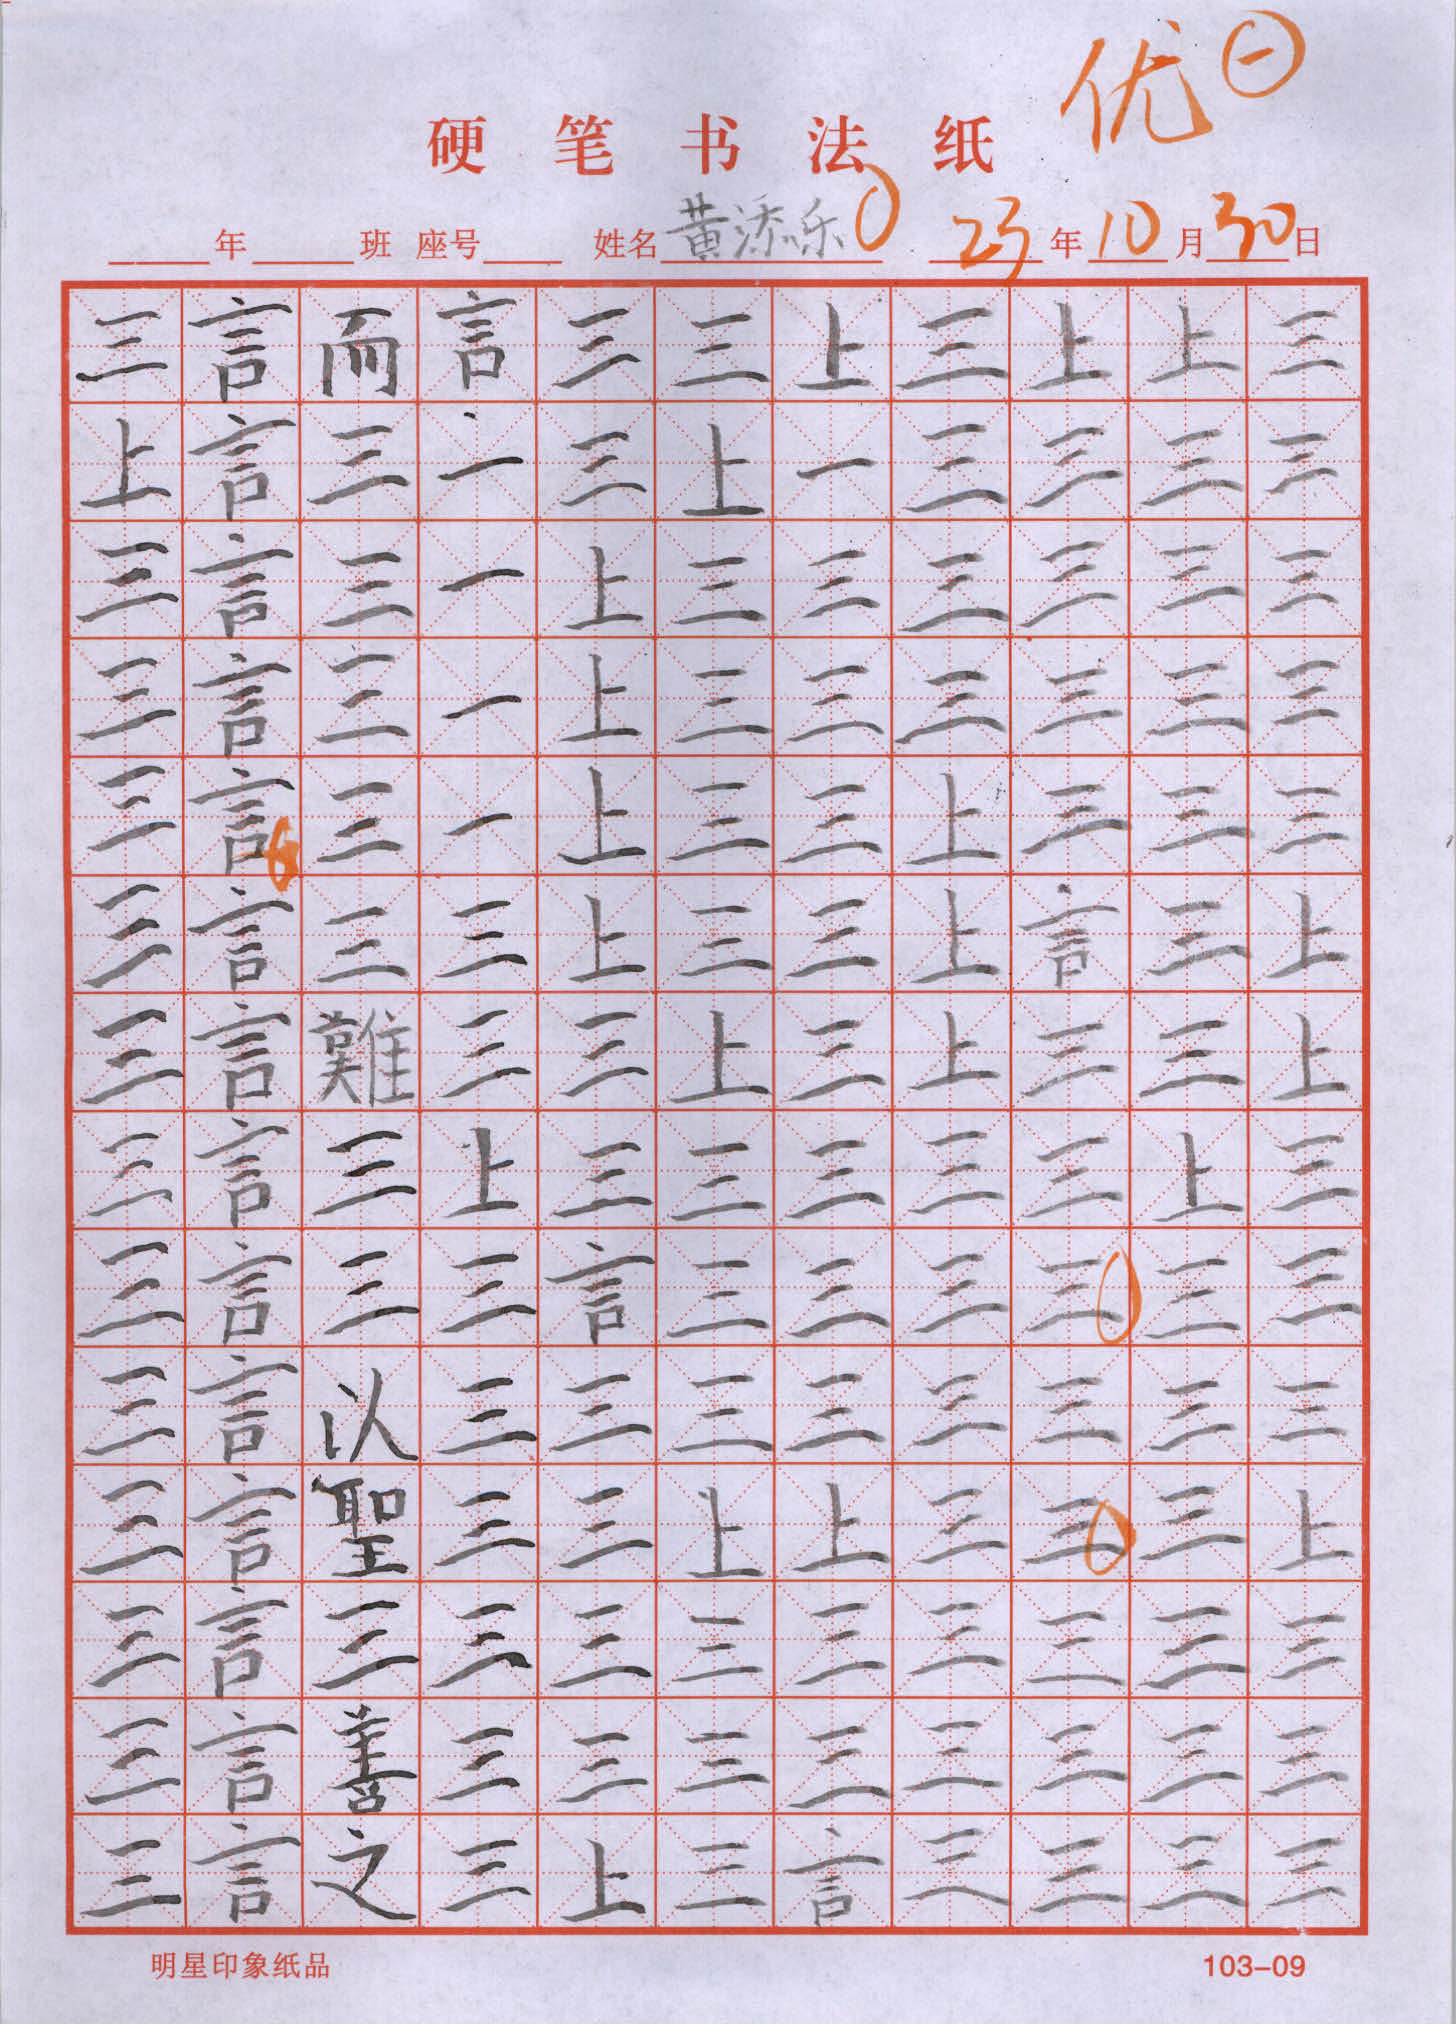 优 ㊀
硬笔书法纸
年 班 座号 姓名 黄添乐 23年10月30日
三 言 而 言 三 三 上 三 上 上 三
上 言 三 一 三 上 一 三 三 三 三
三 言 三 一 上 三 三 三 三 三 三
三 言 三 一 上 三 三 三 三 三 三
三 言 三 一 上 三 三 上 三 三 三
三 言 三 三 上 三 三 上 言 三 上
三 言 難 三 三 上 三 上 三 三 上
三 言 三 上 三 三 三 三 三 上 三
三 言 三 三 言 三 三 三 三 三 三
三 言 以 三 三 三 三 三 三 三 三
三 言 聖 三 三 上 上 三 三 三 上
三 言 三 三 三 三 三 三 三 三 三
三 言 善 三 三 三 三 三 三 三 三
三 言 之 三 上 三 言 三 三 三 三
明星印象纸品 103-09